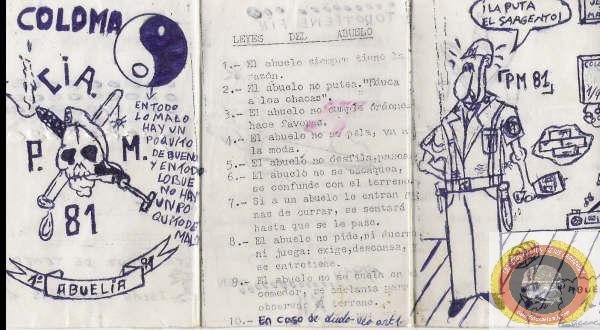 COLOMA
CIA
P. M.
81
EN TODO
LO MALO
HAY UN
POQUITO
DE BUENO
Y EN TODO
LO BUE
NO HAY
UN PO
QUITO DE
MALO
ABUELIA
LEYES DEL ABUELO
1.- El abuelo siempre tiene la
razón.
2.- El abuelo no putea. "Educa
a los chacas".
3.- El abuelo no cumple órdenes
hace favores.
4.- El abuelo no se pela, va a
la moda.
5.- El abuelo no desfila, pasea
6.- El abuelo no se escaquea,
se confunde con el terreno
7.- Si a un abuelo le entran
nas de currar, se sentará
hasta que se le pase.
8.- El abuelo no pide, ni duerme
ni juega: exige, descansa,
se entretiene.
9.- El abuelo no se cuela en
comedor, se adelanta para
observar terreno.
10.- En caso de duda
¡LA PUTA
EL SARGENTO!
"PM 81"